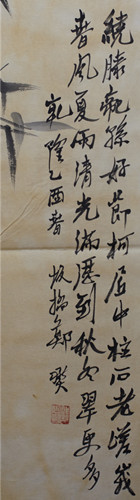 繞膝龍孫好節柯居中柱石老嵯峨
春風夏雨清光滿歷到秋冬翠更多
乾隆乙酉春板橋鄭燮